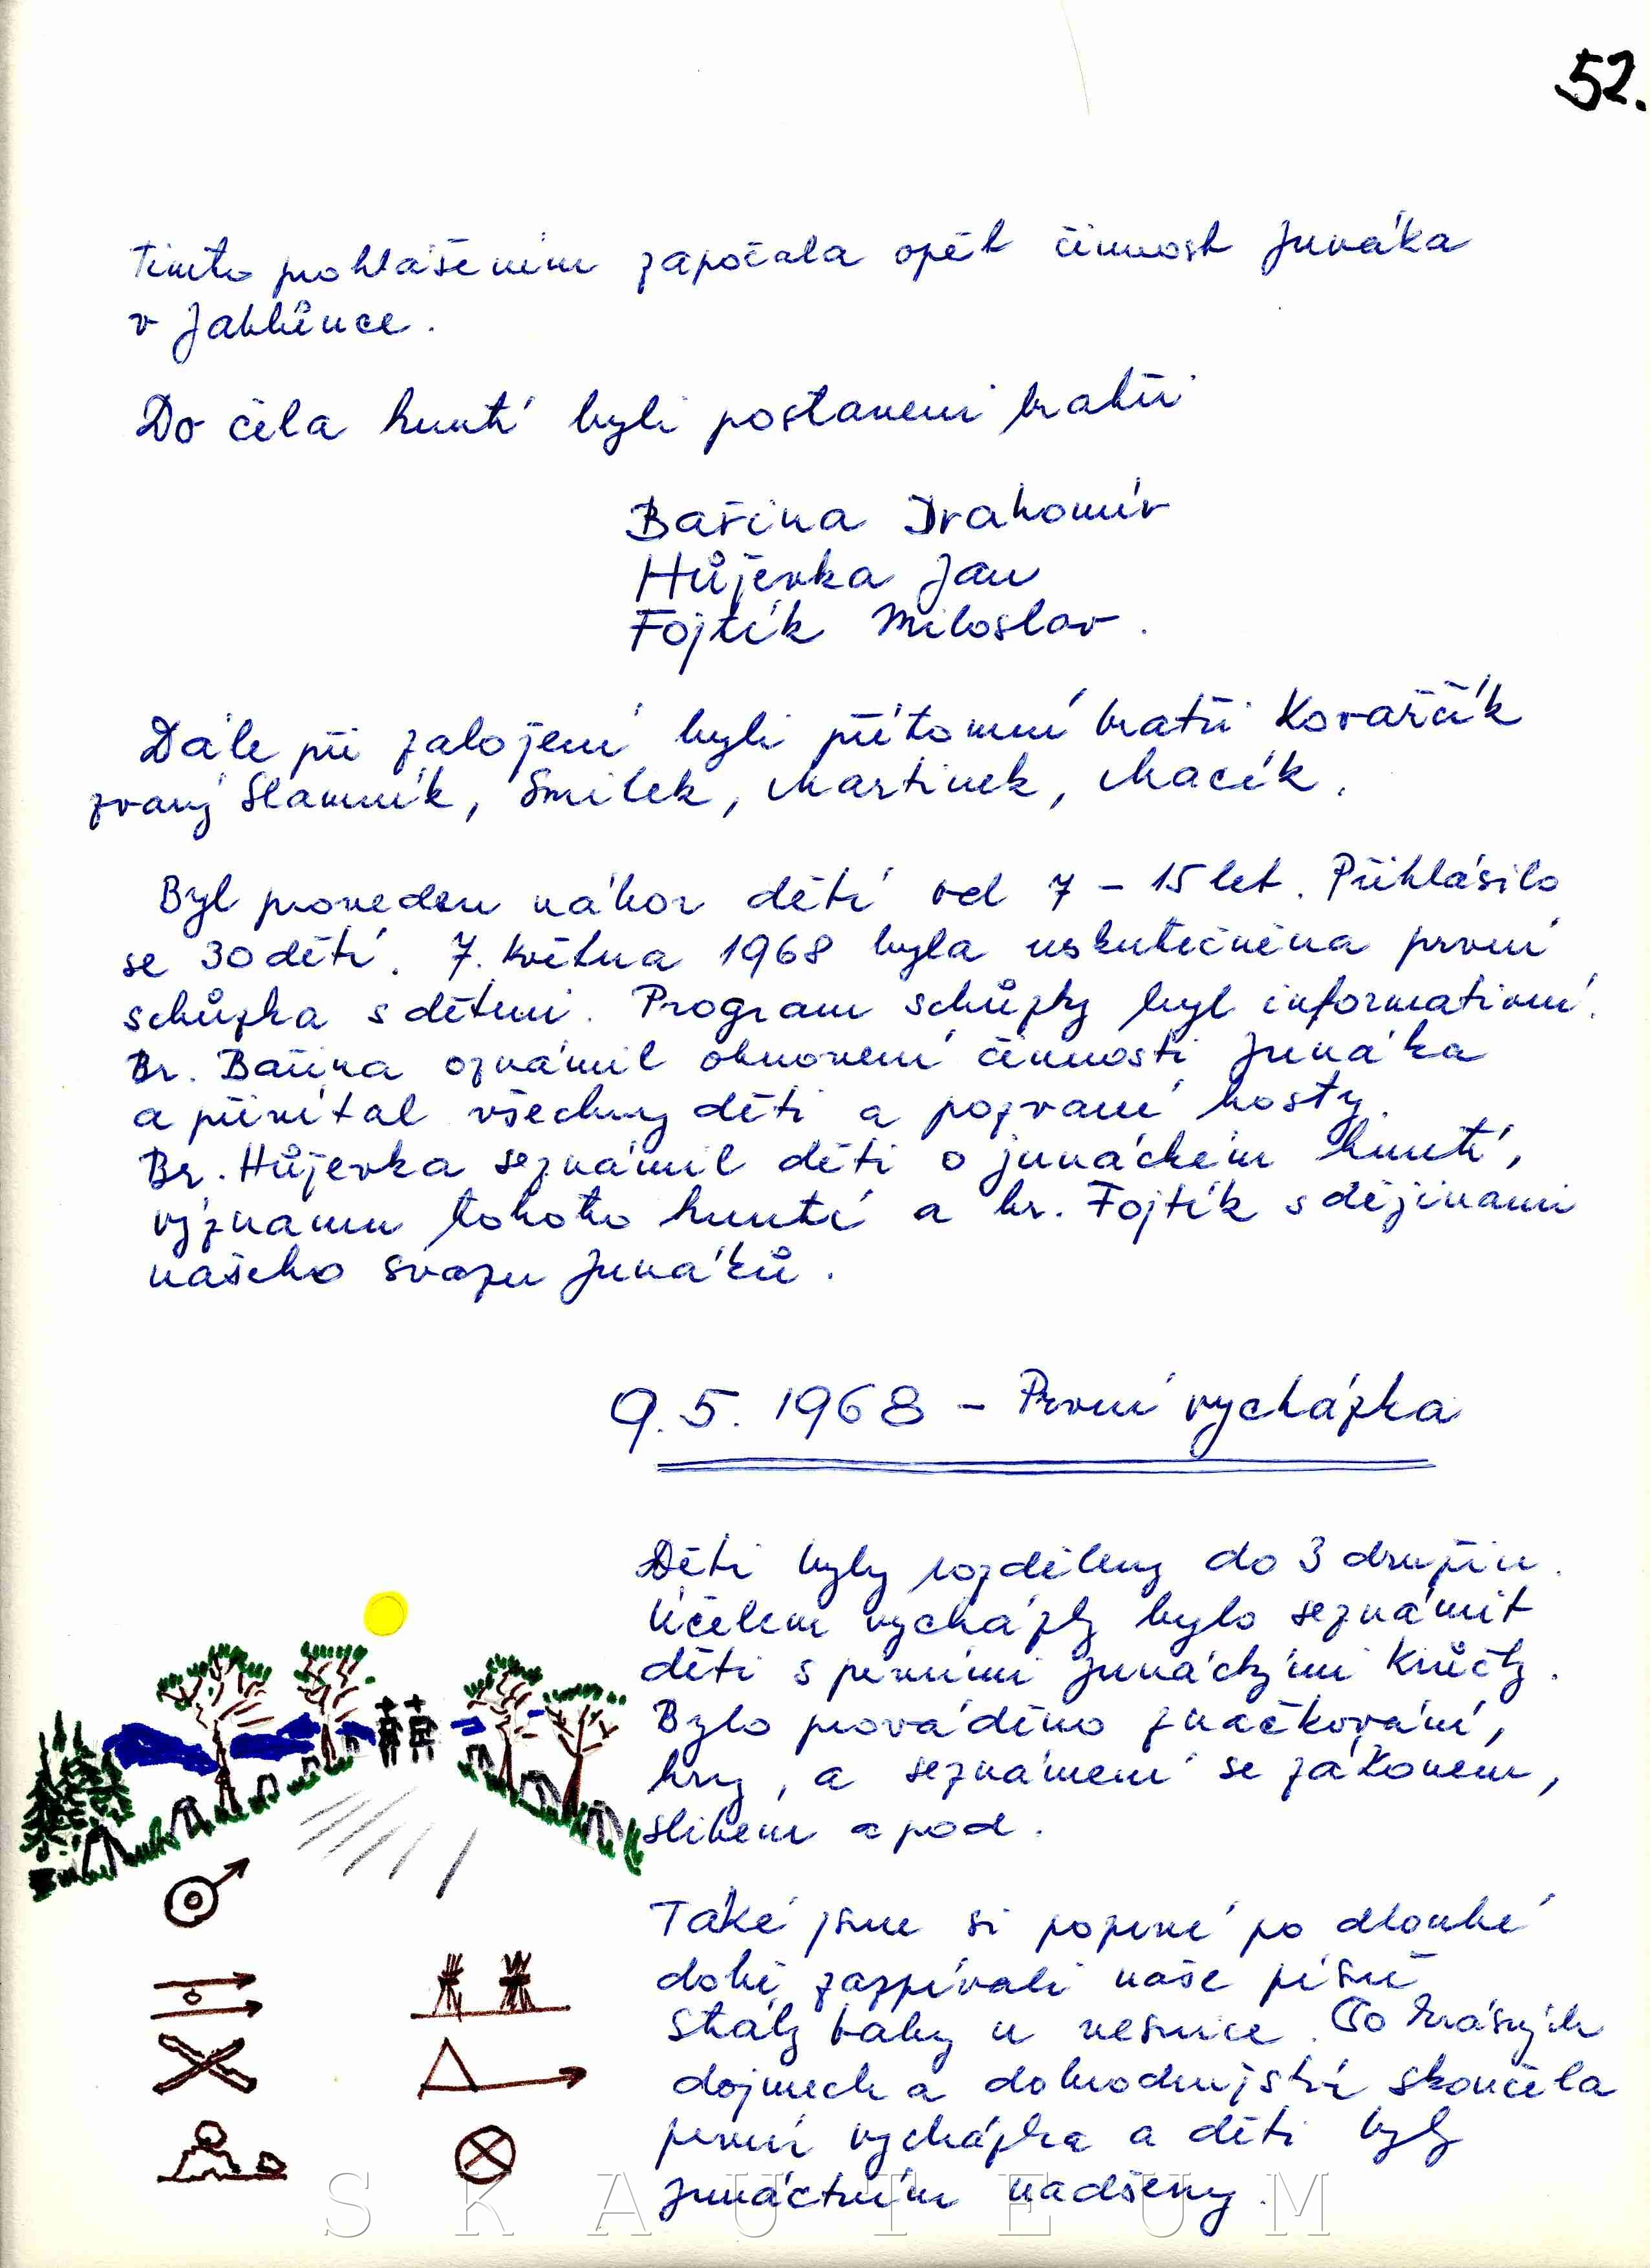 52.
Tímto prohlášením započala opět činnost Junáka
v Jablůnce.
Do čela hnutí byli postaveni bratři
Bařina Drahomír
Hůjevka Jan
Fojtík Miloslav.
Dále při založení byli přítomní bratři Kovařčík
zvaný Slamník, Smilek, Martinek, Macík.
Byl proveden nábor dětí od 7 - 15 let. Přihlásilo
se 30 dětí. 7. května 1968 byla uskutečněna první
schůzka s dětmi. Program schůzky byl informativní.
Br. Bařina oznámil obnovení činnosti Junáka
a přivítal všechny děti a pozvané hosty.
Br. Hůjevka seznámil děti o junáckém hnutí,
významu tohoto hnutí a br. Fojtík s dějinami
našeho svazu Junáků.
9. 5. 1968 - První vycházka
Děti byly rozděleny do 3 družin.
Účelem vycházky bylo seznámit
děti s prvními junáckými krůčky.
Bylo prováděno značkování,
hry, a seznámení se zákonem,
slibem a pod.
Také jsme si poprvé po dlouhé
době zazpívali naše písně
Stály báby u vesnice. Po krásných
dojmech a dobrodružství skončila
první vycházka a děti byly
junáctvím nadšeny.
SKAUTEUM